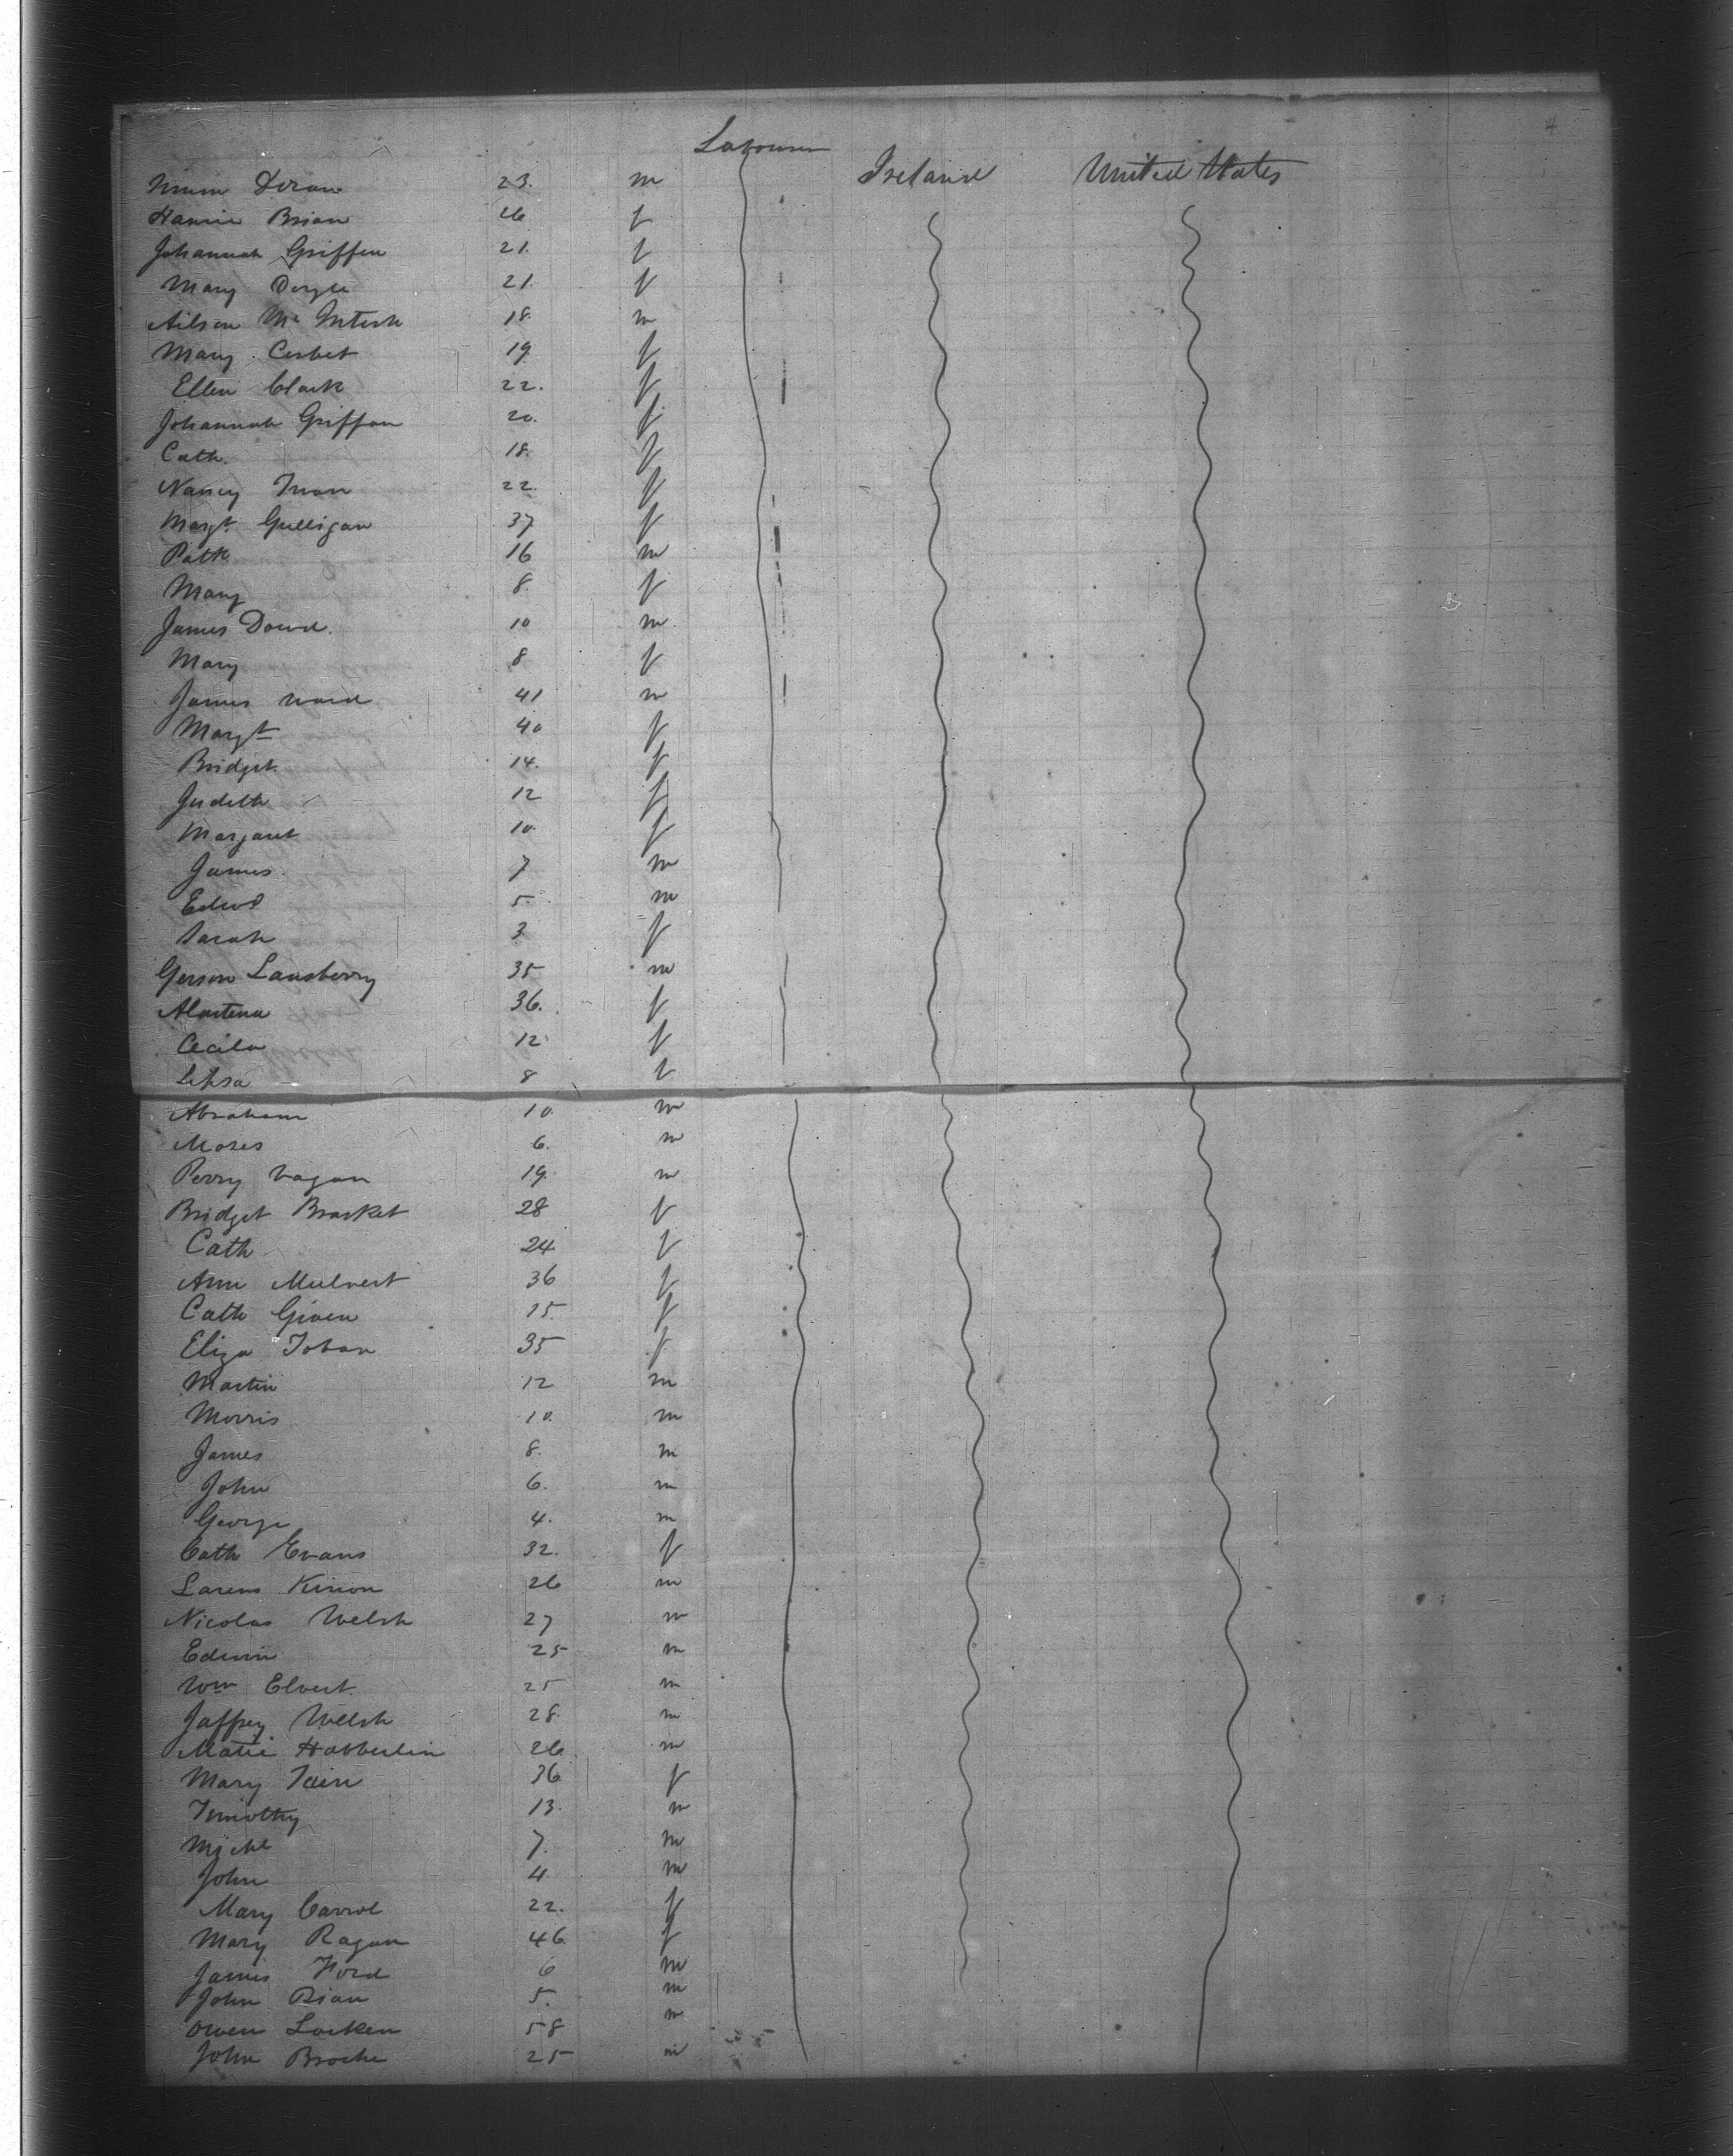 Labourer Ireland United States
Doran 23. m
Brian 26 f
Johannah Griffen 21. f
Mary Doyle 21. f
Ailson Mc Intosh 18. m
Mary Corbet 19 f
Ellen Clark 22. f
Johannah Griffon 20. f
Cath. 18. f
Nancy 22. f
Margt Gulligan 37 f
Patk 16 m
Mary 8. f
James Dowd. 10 m
Mary 8 f
James Ward 41 m
Margt 40 f
Bridget 14. f
Judith 12 f
Margaret 10. f
James 7 m
Edwd 5. m
Sarah 3. f
Gerson Lansberry 35 m
36. f
Cecila 12 f
8 f
Abraham 10. m
Moses 6. m
Perry 19. m
Bridget Brasket 28 f
Cath 24 f
Ann Mulvert 36 f
Cath Given 15. f
Eliza Toban 35 f
Martin 12 m
Morris 10. m
James 8. m
John 6. m
George 4. m
Cath Evans 32. f
Larens Kinion 26 m
Nicolas Welsh 27 m
Edwin 25 m
Wm Elvert 25 m
Jaffrey Welsh 28. m
Habberlin 26 m
Mary 36 f
Timothy 13. m
Michl 7. m
John 4. m
Mary Carrol 22. f
Mary Ragan 46 f
James Ford 6 m
John Bian 5. m
Owen Locken 58 m
John Broche 25 m